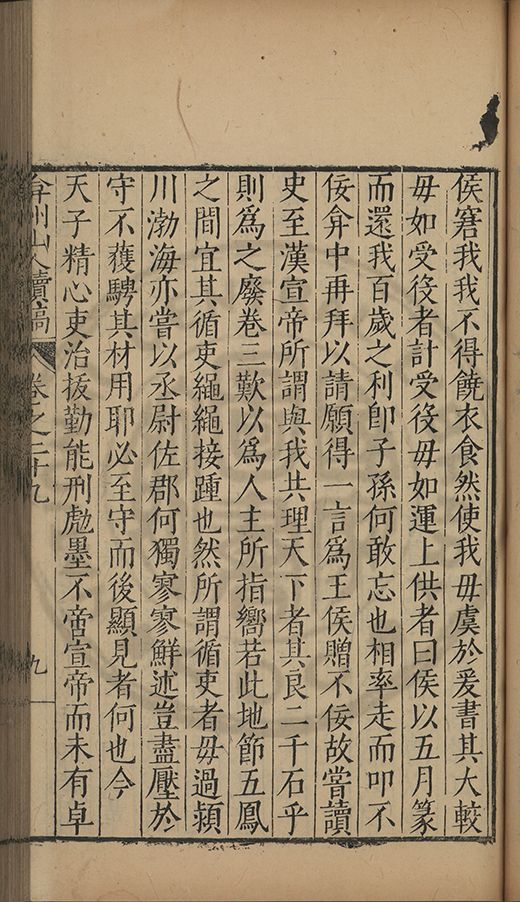 侯窘我我不得饒衣食然使我毋虞於爰書其大較
毋如受役者計受役毋如運上供者曰侯以五月篆
而還我百歲之利卽子孫何敢忘也相率走而叩不
佞弇中再拜以請願得一言爲王侯贈不佞故嘗讀
史至漢宣帝所謂與我共理天下者其良二千石乎
則爲之廢卷三歎以爲人主所指嚮若此地節五鳳
之間宜其循吏繩繩接踵也然所謂循吏者毋過潁
川渤海亦嘗以丞尉佐郡何獨寥寥鮮述豈盡壓於
守不獲騁其材用耶必至守而後顯見者何也今
天子精心吏治拔勤能刑虣墨不啻宣帝而未有卓
弇州山人續稿 卷之二十九 九